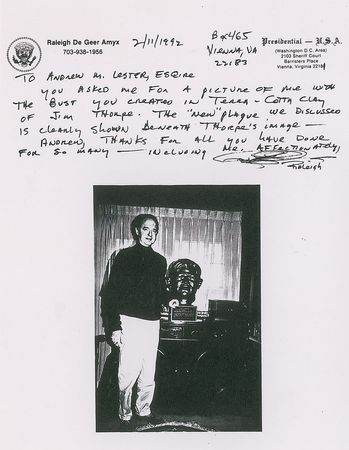 Raleigh De Geer Amyx
703-938-1956
2/11/1992
Bx465
Vienna, VA
22183
Presidential – U.S.A.
(Washington D.C. Area)
2103 Sheriff Court
Barristers Place
Vienna, Virginia 22181
To Andrew M. Lester, Esqire
you asked me for a picture of me with
the bust you created in Terra-Cotta clay
of Jim Thorpe. The "new" plaque we discussed
is clearly shown beneath Thorpe's image —
Andrew, thanks for all you have done
for so many — including me. Affectionately,
Raleigh